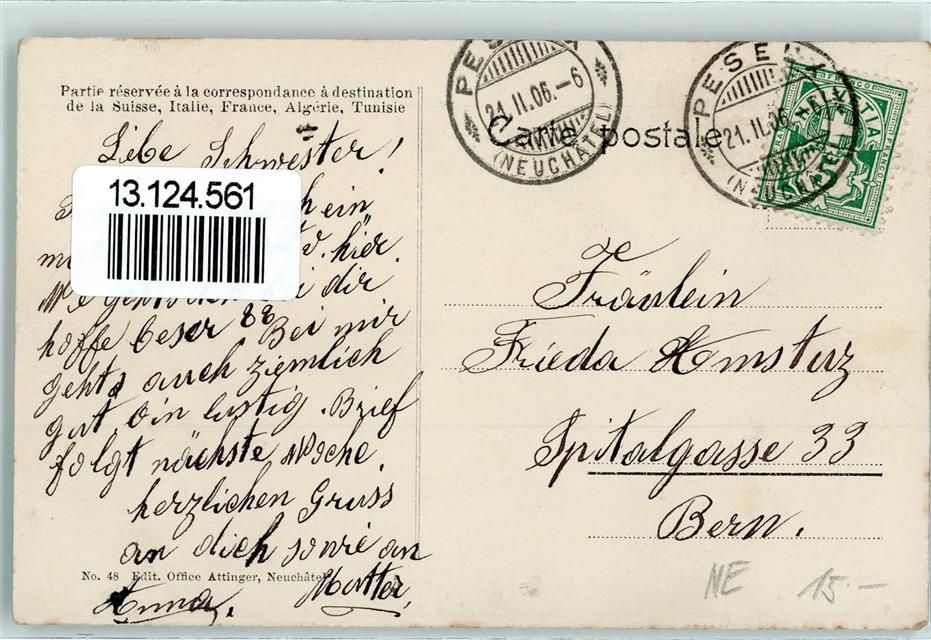 Partie réservée à la correspondance à destination
de la Suisse, Italie, France, Algérie, Tunisie
Liebe Schwester!
13.124.561
ein
hier.
dir
hoffe beser Bei mir
gehts auch ziemlich
gut bin lustig. Brief
folgt nächste Woche.
herzlichen Gruss
an dich sowie an
No. 48 Edit. Office Attinger, Neuchâtel
Mutter,
Anna.
Carte postale
PESEUX
21.II.06.-6
(NEUCHÂTEL)
PESEUX
21.II.06
Fräulein
Frieda Amstuz
Spitalgasse 33
Bern.
NE 15.-